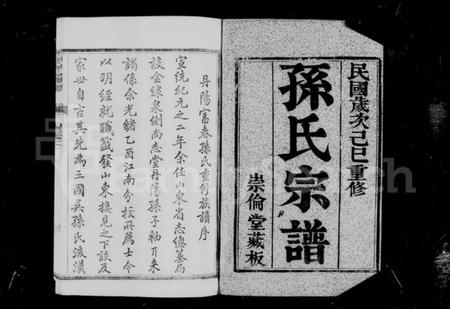 民國歲次己巳重修
孫氏宗譜
崇倫堂藏板
丹陽富春孫氏重修族譜序
宣統紀元之二年余任山東省志總纂局
設金線泉側尚志堂丹陽孫子軸丌來
謁係余光緒乙酉江南分校所薦士今
以明經就職籤發山東接見之下談及
家世自言其先為三國吳孫氏後漢